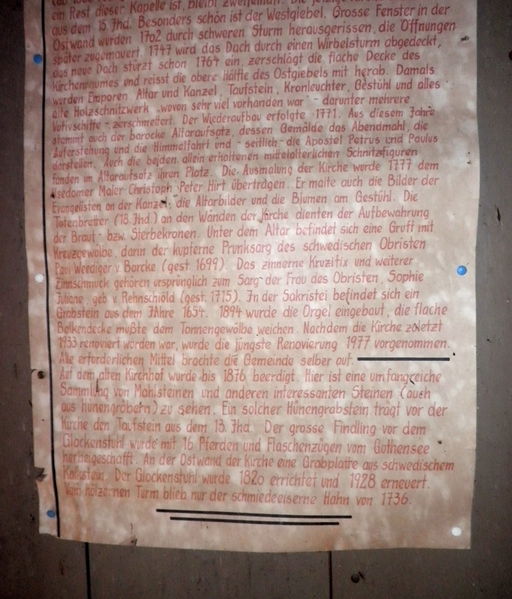 ein Rest dieser Kapelle ist, bleibt
aus dem 15. Jhd. Besonders schön ist der Westgiebel. Grosse Fenster in der
Ostwand wurden 1702 durch schweren Sturm herausgerissen, die Öffnungen
später zugemauert. 1747 wird das Dach durch einen Wirbelsturm abgedeckt,
das neue Dach stürzt schon 1764 ein, zerschlägt die flache Decke des
Kirchenraumes und reisst die obere Hälfte des Ostgiebels mit herab. Damals
werden Emporen, Altar und Kanzel, Taufstein, Kronleuchter, Gestühl und alles
alte Holzschnitzwerk - wovon sehr viel vorhanden war - darunter mehrere
Votivschiffe - zerschmettert. Der Wiederaufbau erfolgte 1771. Aus diesem Jahre
stammt auch der barocke Altaraufsatz, dessen Gemälde das Abendmahl, die
Auferstehung und die Himmelfahrt und - seitlich - die Apostel Petrus und Paulus
darstellen. Auch die beiden allein erhaltenen mittelalterlichen Schnitzfiguren
fanden im Altaraufsatz ihren Platz. Die Ausmalung der Kirche wurde 1777 dem
Usedomer Maler Christoph Peter Hirt übertragen. Er malte auch die Bilder der
Evangelisten an der Kanzel, die Altarbilder und die Blumen am Gestühl. Die
Totenbretter (18. Jhd.) an den Wänden der Kirche dienten der Aufbewahrung
der Braut- bzw. Sterbekronen. Unter dem Altar befindet sich eine Gruft mit
Kreuzgewölbe, darin der kupferne Prunksarg des schwedischen Obristen
Paul Weediger v. Borcke (gest. 1699). Das zinnerne Kruzifix und weiterer
Zinnschmuck gehören ursprünglich zum Sarg der Frau des Obristen, Sophie
Juliane, geb. v. Rehnschiöld (gest. 1715). In der Sakristei befindet sich ein
Grabstein aus dem Jahre 1654. 1894 wurde die Orgel eingebaut, die flache
Balkendecke mußte dem Tonnengewölbe weichen. Nachdem die Kirche zuletzt
1933 renoviert worden war, wurde die jüngste Renovierung 1977 vorgenommen.
Alle erforderlichen Mittel brachte die Gemeinde selber auf.
Auf dem alten Kirchhof wurde bis 1876 beerdigt. Hier ist eine umfangreiche
Sammlung von Mahlsteinen und anderen interessanten Steinen (auch
aus Hünengräbern) zu sehen. Ein solcher Hünengrabstein trägt vor der
Kirche den Taufstein aus dem 13. Jhd. Der grosse Findling vor dem
Glockenstuhl wurde mit 16 Pferden und Flaschenzügen vom Gothensee
herbeigeschafft. An der Ostwand der Kirche eine Grabplatte aus schwedischem
Kalkstein. Der Glockenstuhl wurde 1820 errichtet und 1928 erneuert.
Vom hölzernen Turm blieb nur der schmiedeeiserne Hahn von 1736.